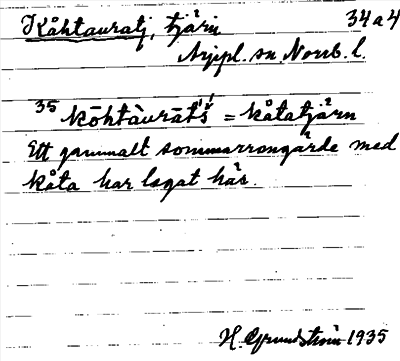 Kåhtauratj, tjärn 34a4
Arjpl. sn Norrb. l.
35 kōhtàurāt́š́ = kåtatjärn
Ett gammalt sommarrengärde med
kåta har legat här.
H. Grundström 1935